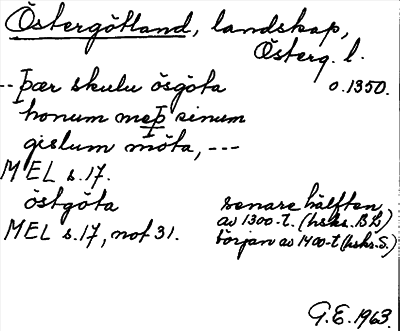 Östergötland, landskap,
Österg. l.
--Þær skulu ösgöta o.1350.
honum meþ sinum
gislum möta, ---
MEL s.17.
östgöta senare hälften
av 1300-t. (hsks. BL)
MEL s.17, not 31. början av 1400-t (hsks. S.)
G.E. 1963.